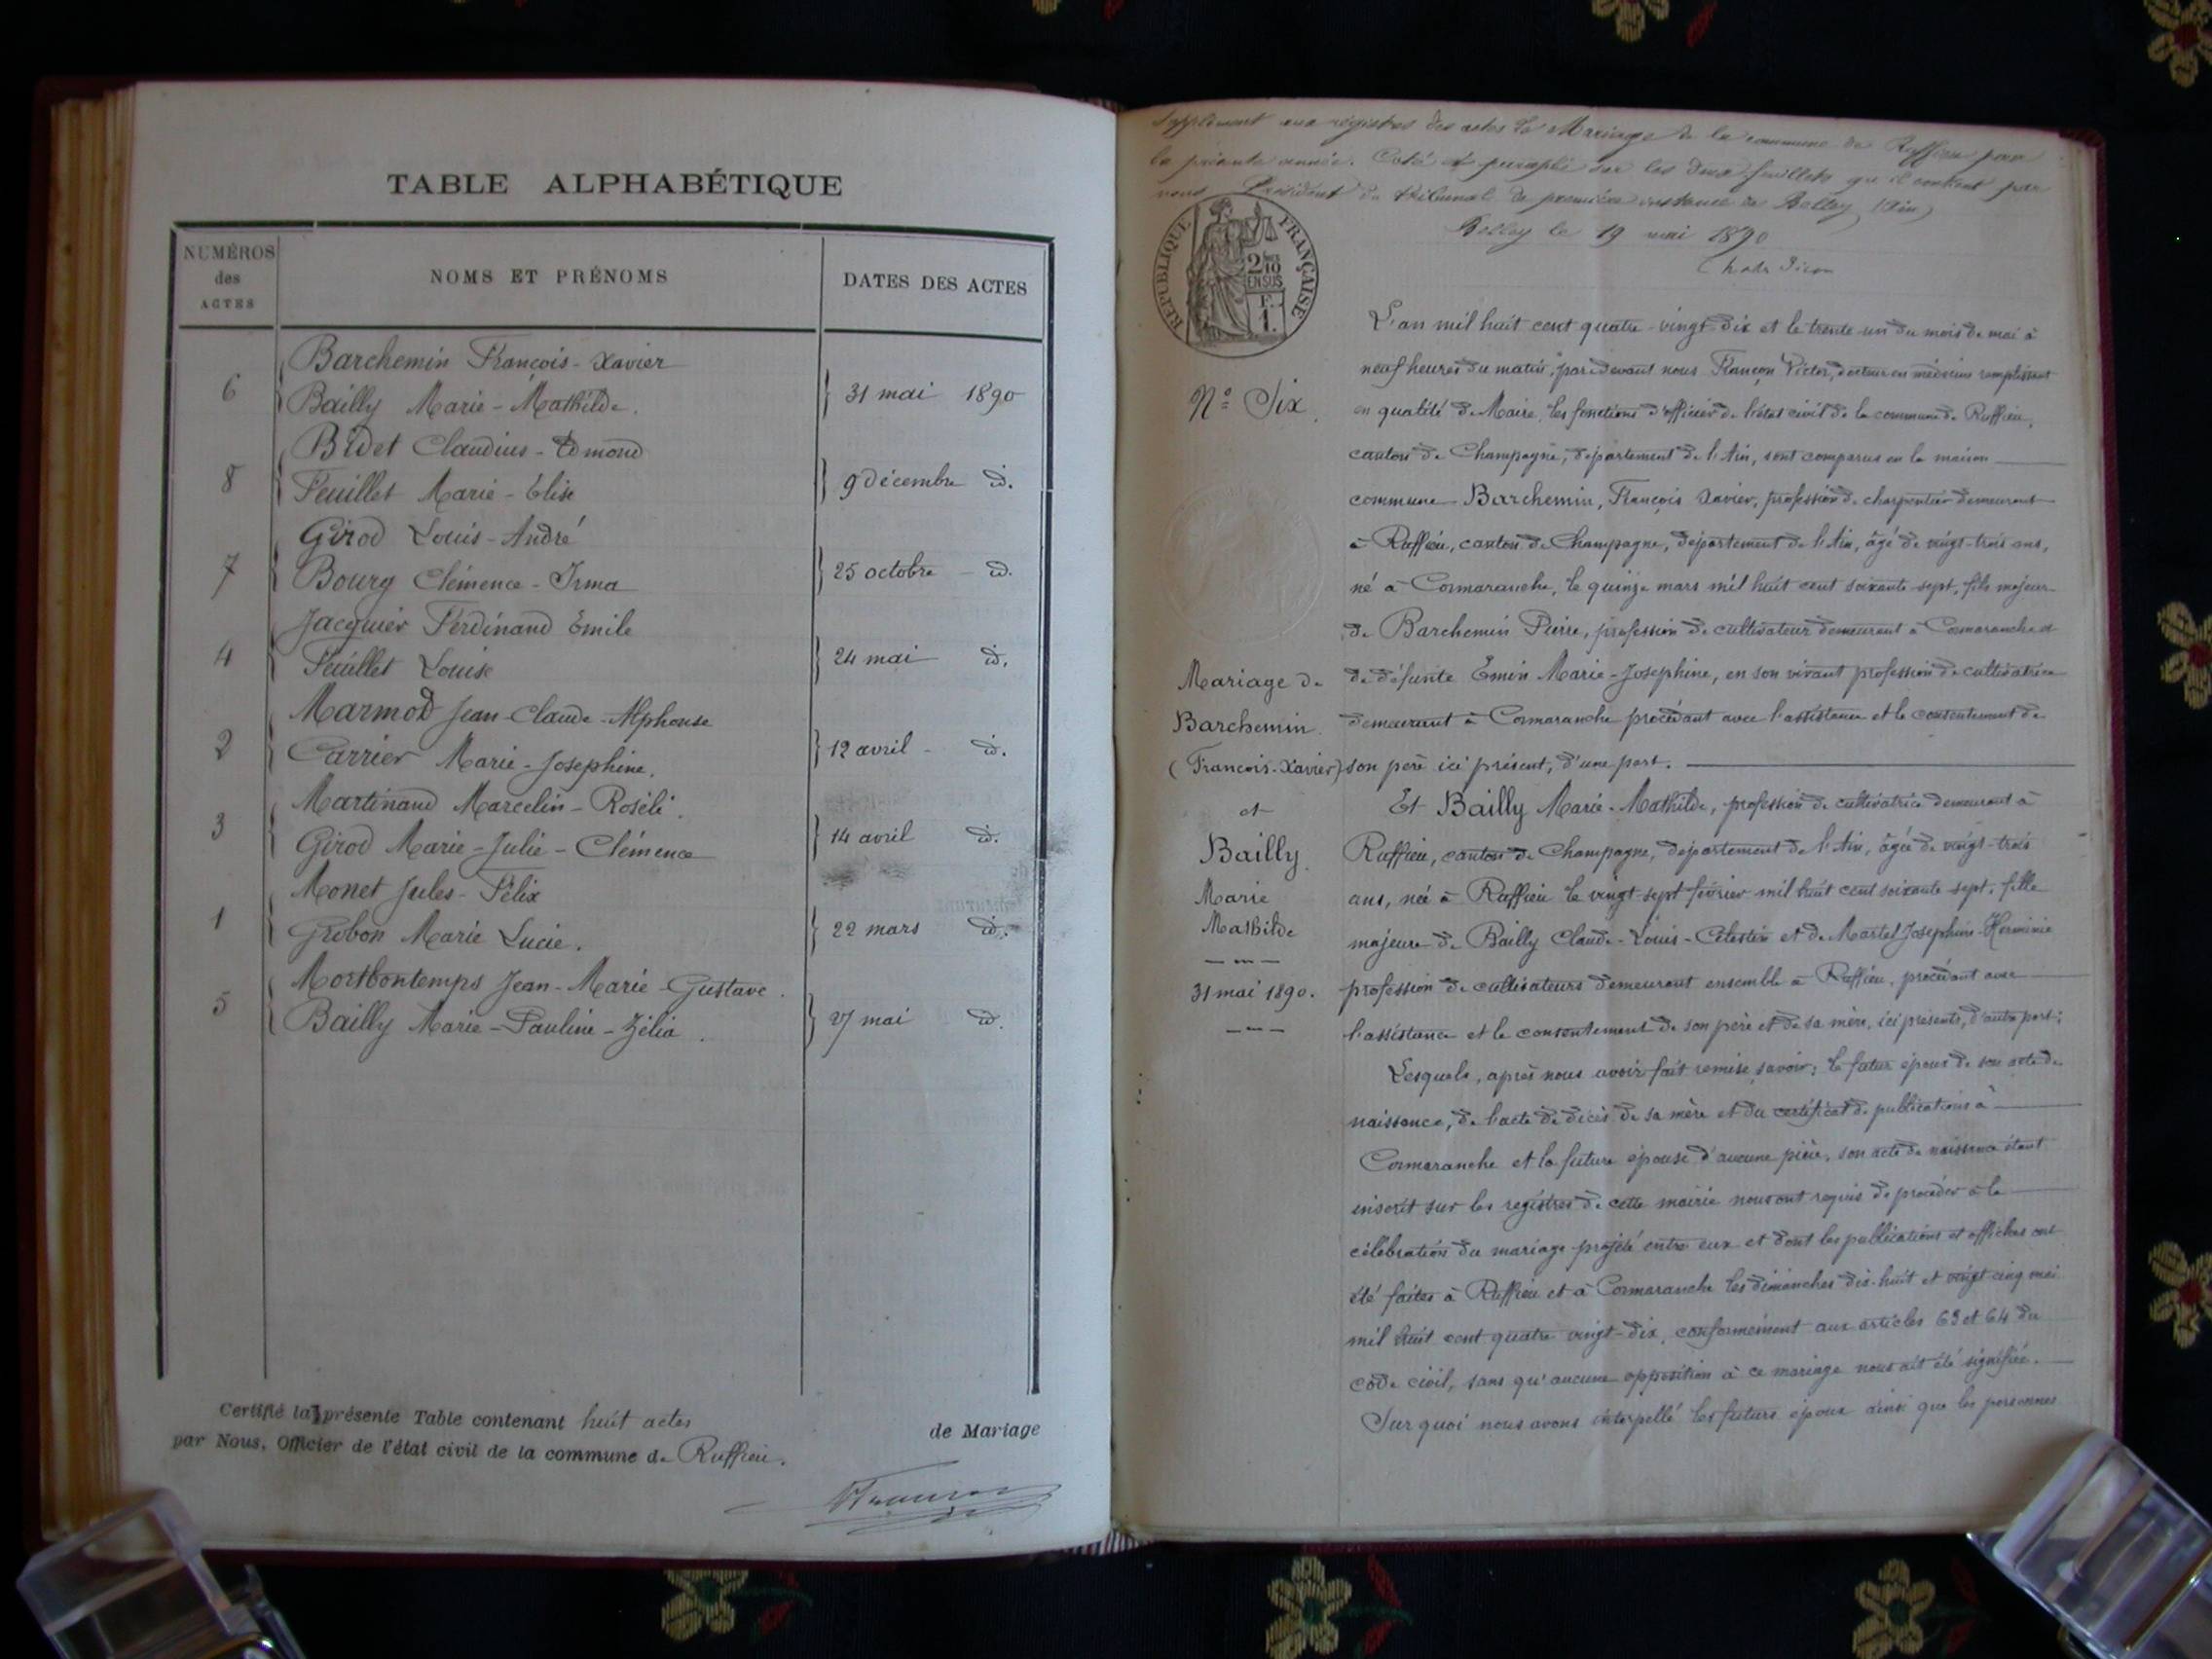 TABLE ALPHABÉTIQUE
NUMÉROS des ACTES
NOMS ET PRÉNOMS
DATES DES ACTES
Barchemin François-Xavier
6 Bailly Marie-Mathilde. 31 mai 1890
Bidet Claudius-Edmond
8 Feuillet Marie-Élise 9 décembre id.
Girod Louis-André
7 Bourg Clémence-Irma 25 octobre - id.
Jacquier Ferdinand Emile
4 Feuillet Louise 24 mai id.
Marmod Jean-Claude-Alphonse
2 Carrier Marie-Josephine. 12 avril - id.
Martinand Marcelin-Roséli.
3 Girod Marie-Julie-Clémence 14 avril id.
Monet Jules-Félix
1 Grobon Marie Lucie. 22 mars id.
Mortbontemps Jean-Marie-Gustave.
5 Bailly Marie-Pauline-Zélia. 27 mai id.
Certifié la présente Table contenant huit actes de Mariage
par Nous, Officier de l'état civil de la commune de Ruffieu.
Supplément aux régistres des actes de Mariage de la commune de Ruffieu pour
la présente année. Coté et paraphé sur les deux feuillets qu'il contient par
nous Président du tribunal de première instance de Belley (Ain)
Belley le 19 mai 1890
RÉPUBLIQUE FRANÇAISE
2/10 EN SUS
F. 1.
L'an mil huit cent quatre-vingt-dix et le trente-un du mois de mai à
neuf heures du matin, pardevant nous Françon Victor, docteur en médecine remplissant
N° Six.
en qualité de Maire, les fonctions d'officier de l'état civil de la commune de Ruffieu,
canton de Champagne, département de l'Ain, sont comparus en la maison
commune Barchemin, François Xavier, profession de charpentier demeurant
à Ruffieu, canton de Champagne, département de l'Ain, âgé de vingt-trois ans,
né à Cormaranche, le quinze mars mil huit cent soixante-sept, fils majeur
de Barchemin Pierre, profession de cultivateur demeurant à Cormaranche et
Mariage de
de défunte Emin Marie-Josephine, en son vivant profession de cultivatrice
Barchemin
demeurant à Cormaranche procédant avec l'assistance et le consentement de
(François-Xavier)
son père ici présent, d'une part.
et
Et Bailly Marie-Mathilde, profession de cultivatrice demeurant à
Bailly
Ruffieu, canton de Champagne, département de l'Ain, âgée de vingt-trois
Marie
ans, née à Ruffieu le vingt-sept février mil huit cent soixante-sept, fille
Mathilde
majeure de Bailly Claude-Louis-Célestin et de Martel Josephine-Herminie
31 mai 1890.
profession de cultivateurs demeurant ensemble à Ruffieu, procédant avec
l'assistance et le consentement de son père et de sa mère, ici présents, d'autre part;
Lesquels, après nous avoir fait remise, savoir: le futur époux de son acte de
naissance, de l'acte de décès de sa mère et du certificat de publications à
Cormaranche et la future épouse d'aucune pièce, son acte de naissance étant
inscrit sur les registres de cette mairie nous ont requis de procéder à la
célébration du mariage projeté entre eux et dont les publications et affiches ont
été faites à Ruffieu et à Cormaranche les dimanches dix-huit et vingt cinq mai
mil huit cent quatre vingt-dix, conformément aux articles 63 et 64 du
code civil, sans qu'aucune opposition à ce mariage nous ait été signifiée.
Sur quoi nous avons interpellé les futurs époux ainsi que les personnes